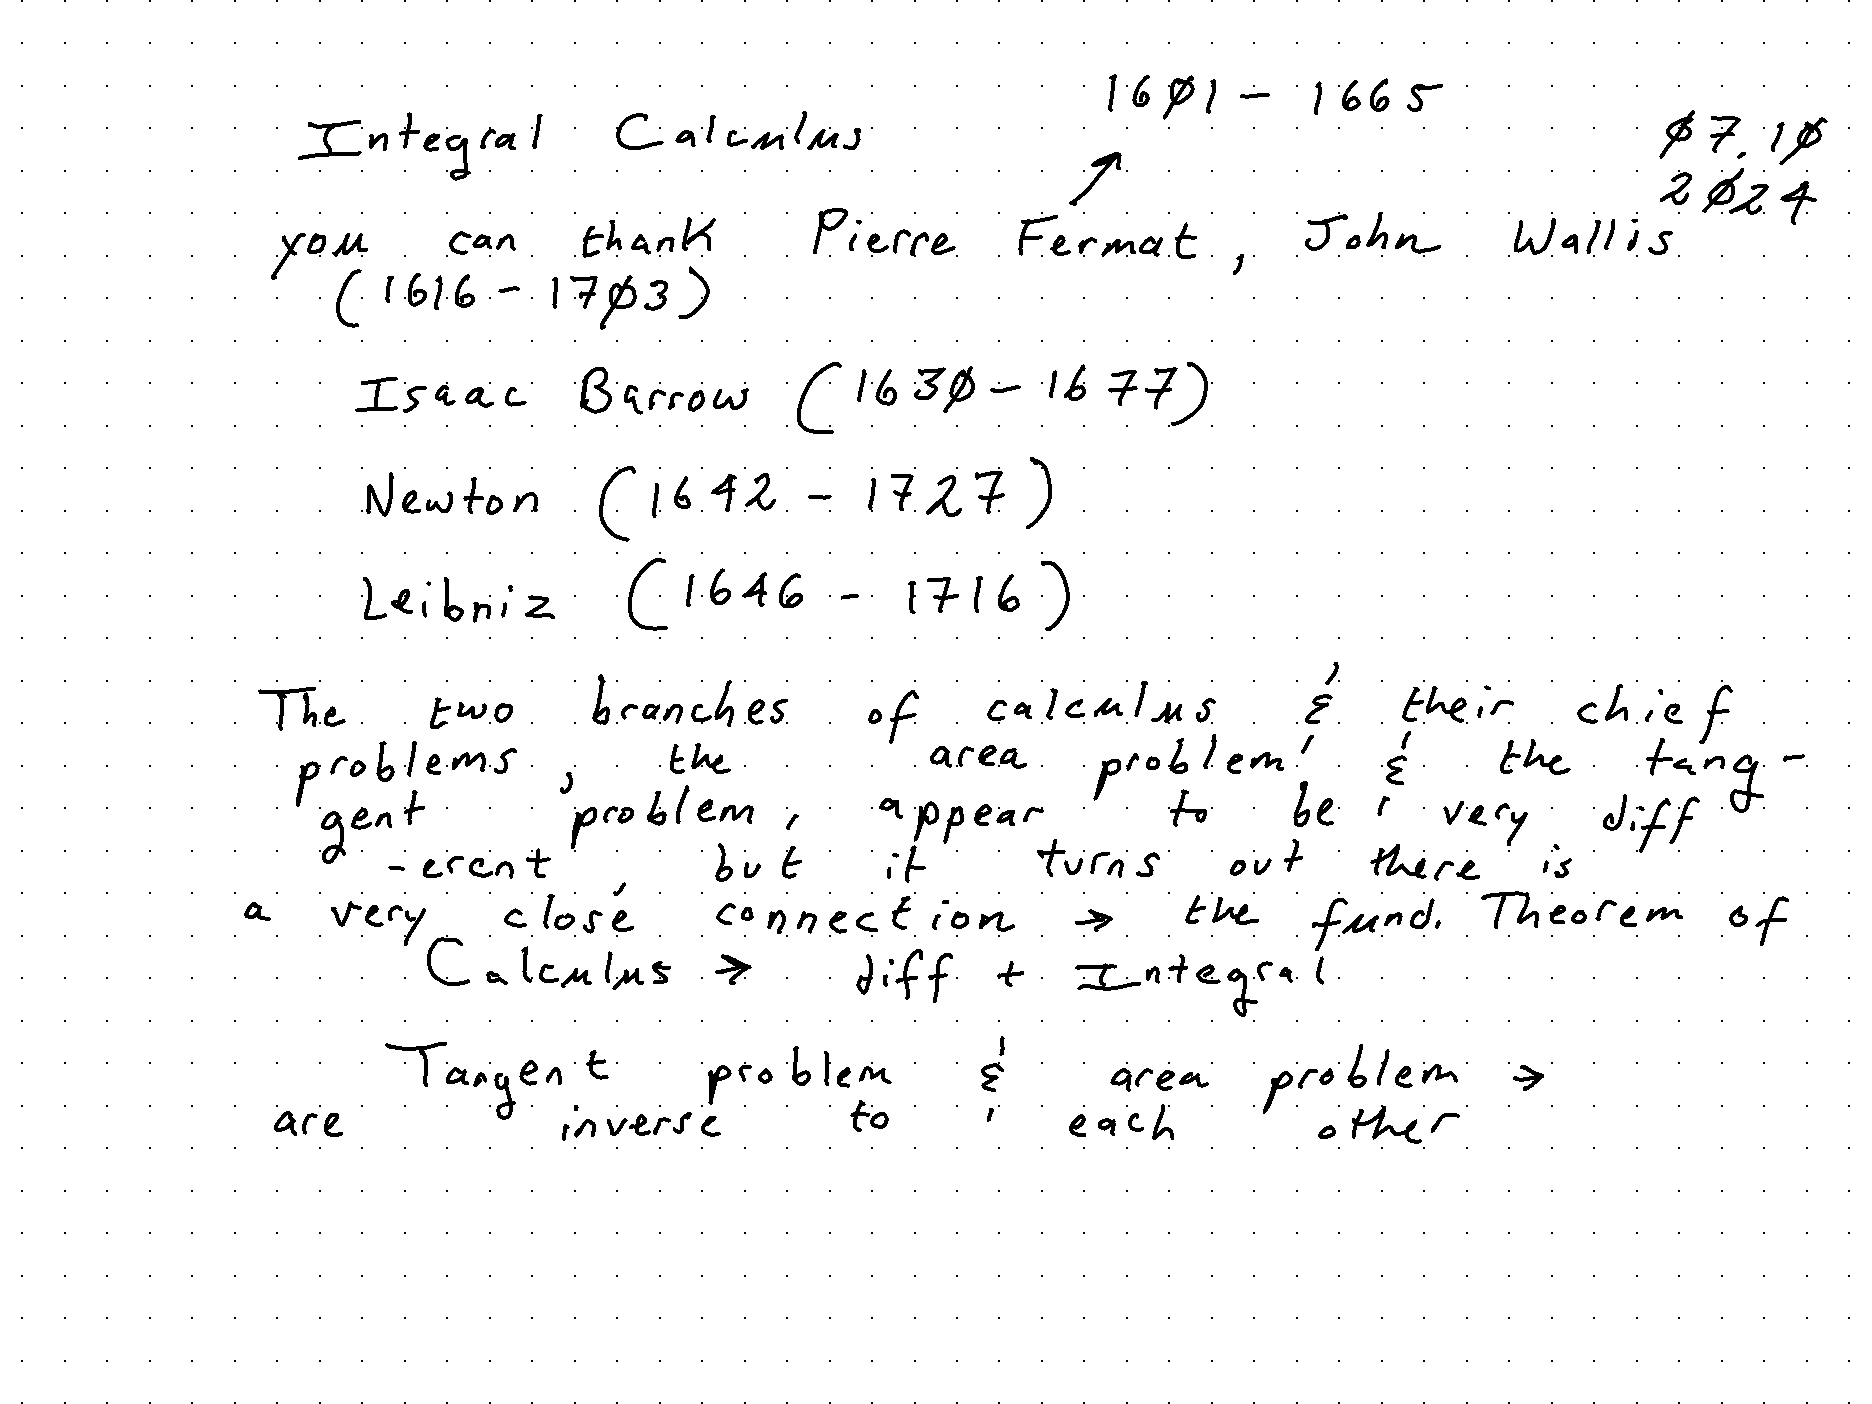 1601 - 1665
Integral Calculus
07.10
2024
you can thank Pierre Fermat, John Wallis
(1616 - 1703)
Isaac Barrow (1630 - 1677)
Newton (1642 - 1727)
Leibniz (1646 - 1716)
The two branches of calculus & their chief
problems, the area problem & the tang-
gent problem, appear to be very diff
-erent, but it turns out there is
a very close connection → the fund. Theorem of
Calculus → diff + Integral
Tangent problem & area problem →
are inverse to each other